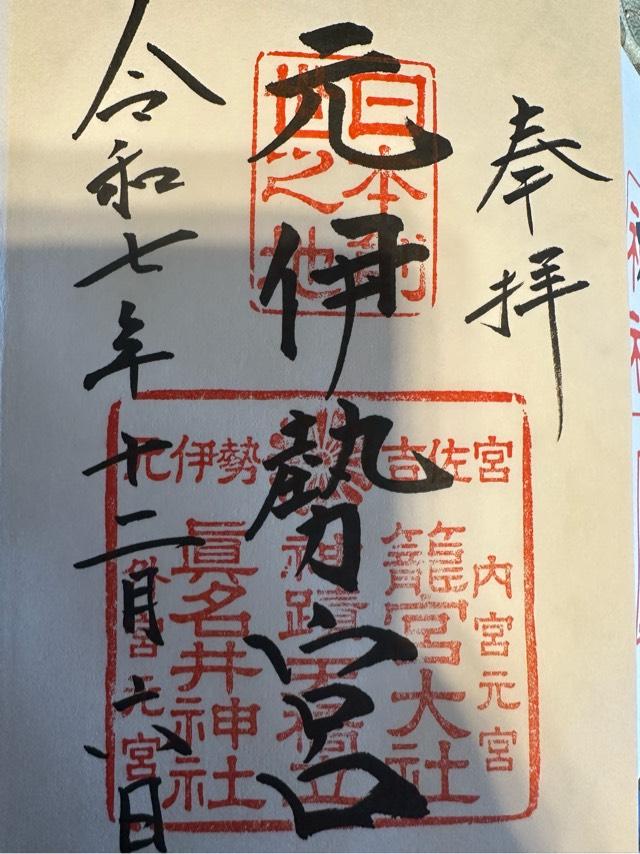 奉拝
元伊勢宮
令和七年十二月六日
日本
世之地
元伊勢 吉佐宮
内宮元宮
籠宮大社
神蹟天橋立
眞名井神社
宮元宮